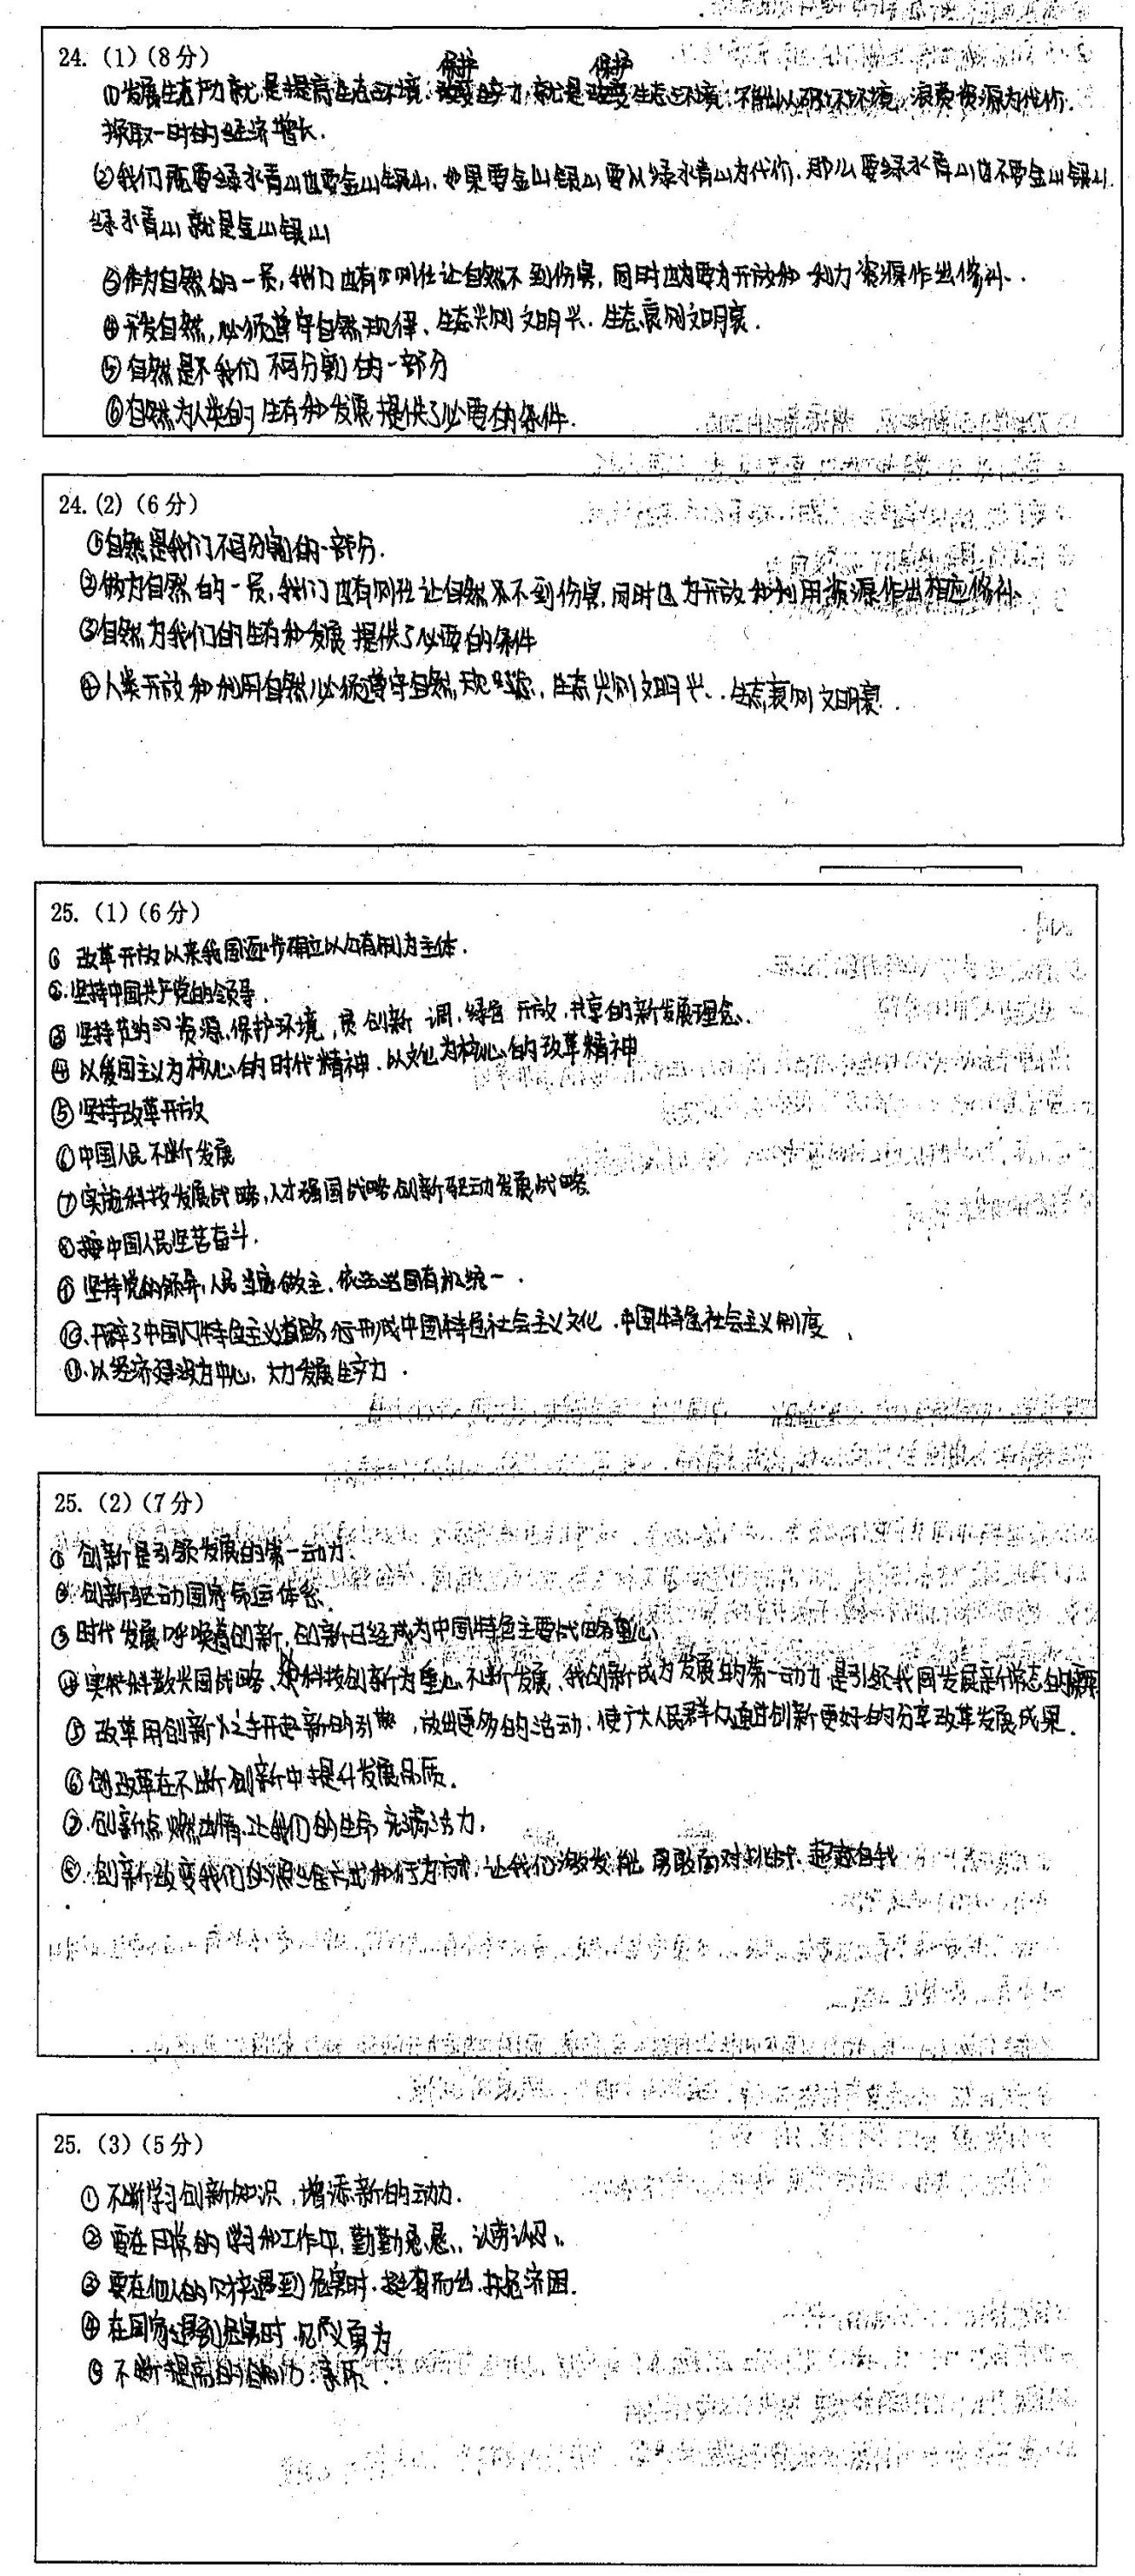 24. (1) (8分)
保护 保护
①发展生态产力就是提高生态环境,改变生产力,就是改变生态环境,不能以破坏环境,浪费资源为代价.
换取一时的经济增长.
②我们既要绿水青山也要金山银山,如果要金山银山要以绿水青山为代价.那么要绿水青山也不要金山银山.
绿水青山就是金山银山
③作为自然的一员,我们也有 让自然不到伤害,同时也为要为开放和利力资源作出修补.
④开发自然,必须遵守自然规律、生态兴则文明兴.生态衰则文明衰.
⑤自然是我们不可分割的一部分
⑥自然为人类的生存和发展提供了必要的条件.
24. (2) (6分)
①自然是我们不可分割的一部分.
②做为自然的一员,我们也有 让自然不到伤害,同时也为开放和利用资源作出相应修补.
③自然为我们的生存和发展提供了必要的条件
④人类开放和利用自然必须遵守自然规律,生态兴则文明兴.生态衰则文明衰.
25. (1) (6分)
① 改革开放以来我国逐步确立以公有制为主体.
②.坚持中国共产党的领导.
③ 坚持节约的资源.保护环境,贯创新 调.绿色 开放.共享的新发展理念.
④ 以爱国主义为核心的时代精神.以文化为核心的改革精神
⑤坚持改革开放
⑥中国人民不断发展
⑦实施科技发展战略,人才强国战略创新驱动发展战略
⑧ 中国人民坚苦奋斗.
⑨ 坚持党的领导,人民当家做主.依法治国有机统一.
⑩.开辟了中国特色主义道路,形成中国特色社会主义文化.中国特色社会主义制度
⑪.以经济建设为中心,大力发展生产力.
25. (2) (7分)
① 创新是引领发展的第一动力.
②.创新驱动国家命运体系.
③ 时代发展呼唤着创新,创新已经成为中国特色主要战略重心
④ 实施科教兴国战略、 科技创新为重心不断发展、我创新成为发展的第一动力 是引领我国发展新常态的
⑤ 改革用创新之手开起新的引擎,放出更多的活动,使广大人民群众通过创新更好的分享改革发展成果.
⑥创改革在不断创新中提升发展品质.
⑦.创新点燃激情.让我们的生命充满活力.
⑧.创新改变我们的思维方式和行为方式,让我们激发 勇敢面对挑战、超越自我
25. (3) (5分)
① 不断学习创新知识,增添新的动力.
② 要在日常的学习和工作中,勤勤恳恳.认劳认怨.
③ 要在他人的 遇到危害时.挺身而出.扶危济困.
④ 在国家遇到危害时.见义勇为
⑤ 不断提高自